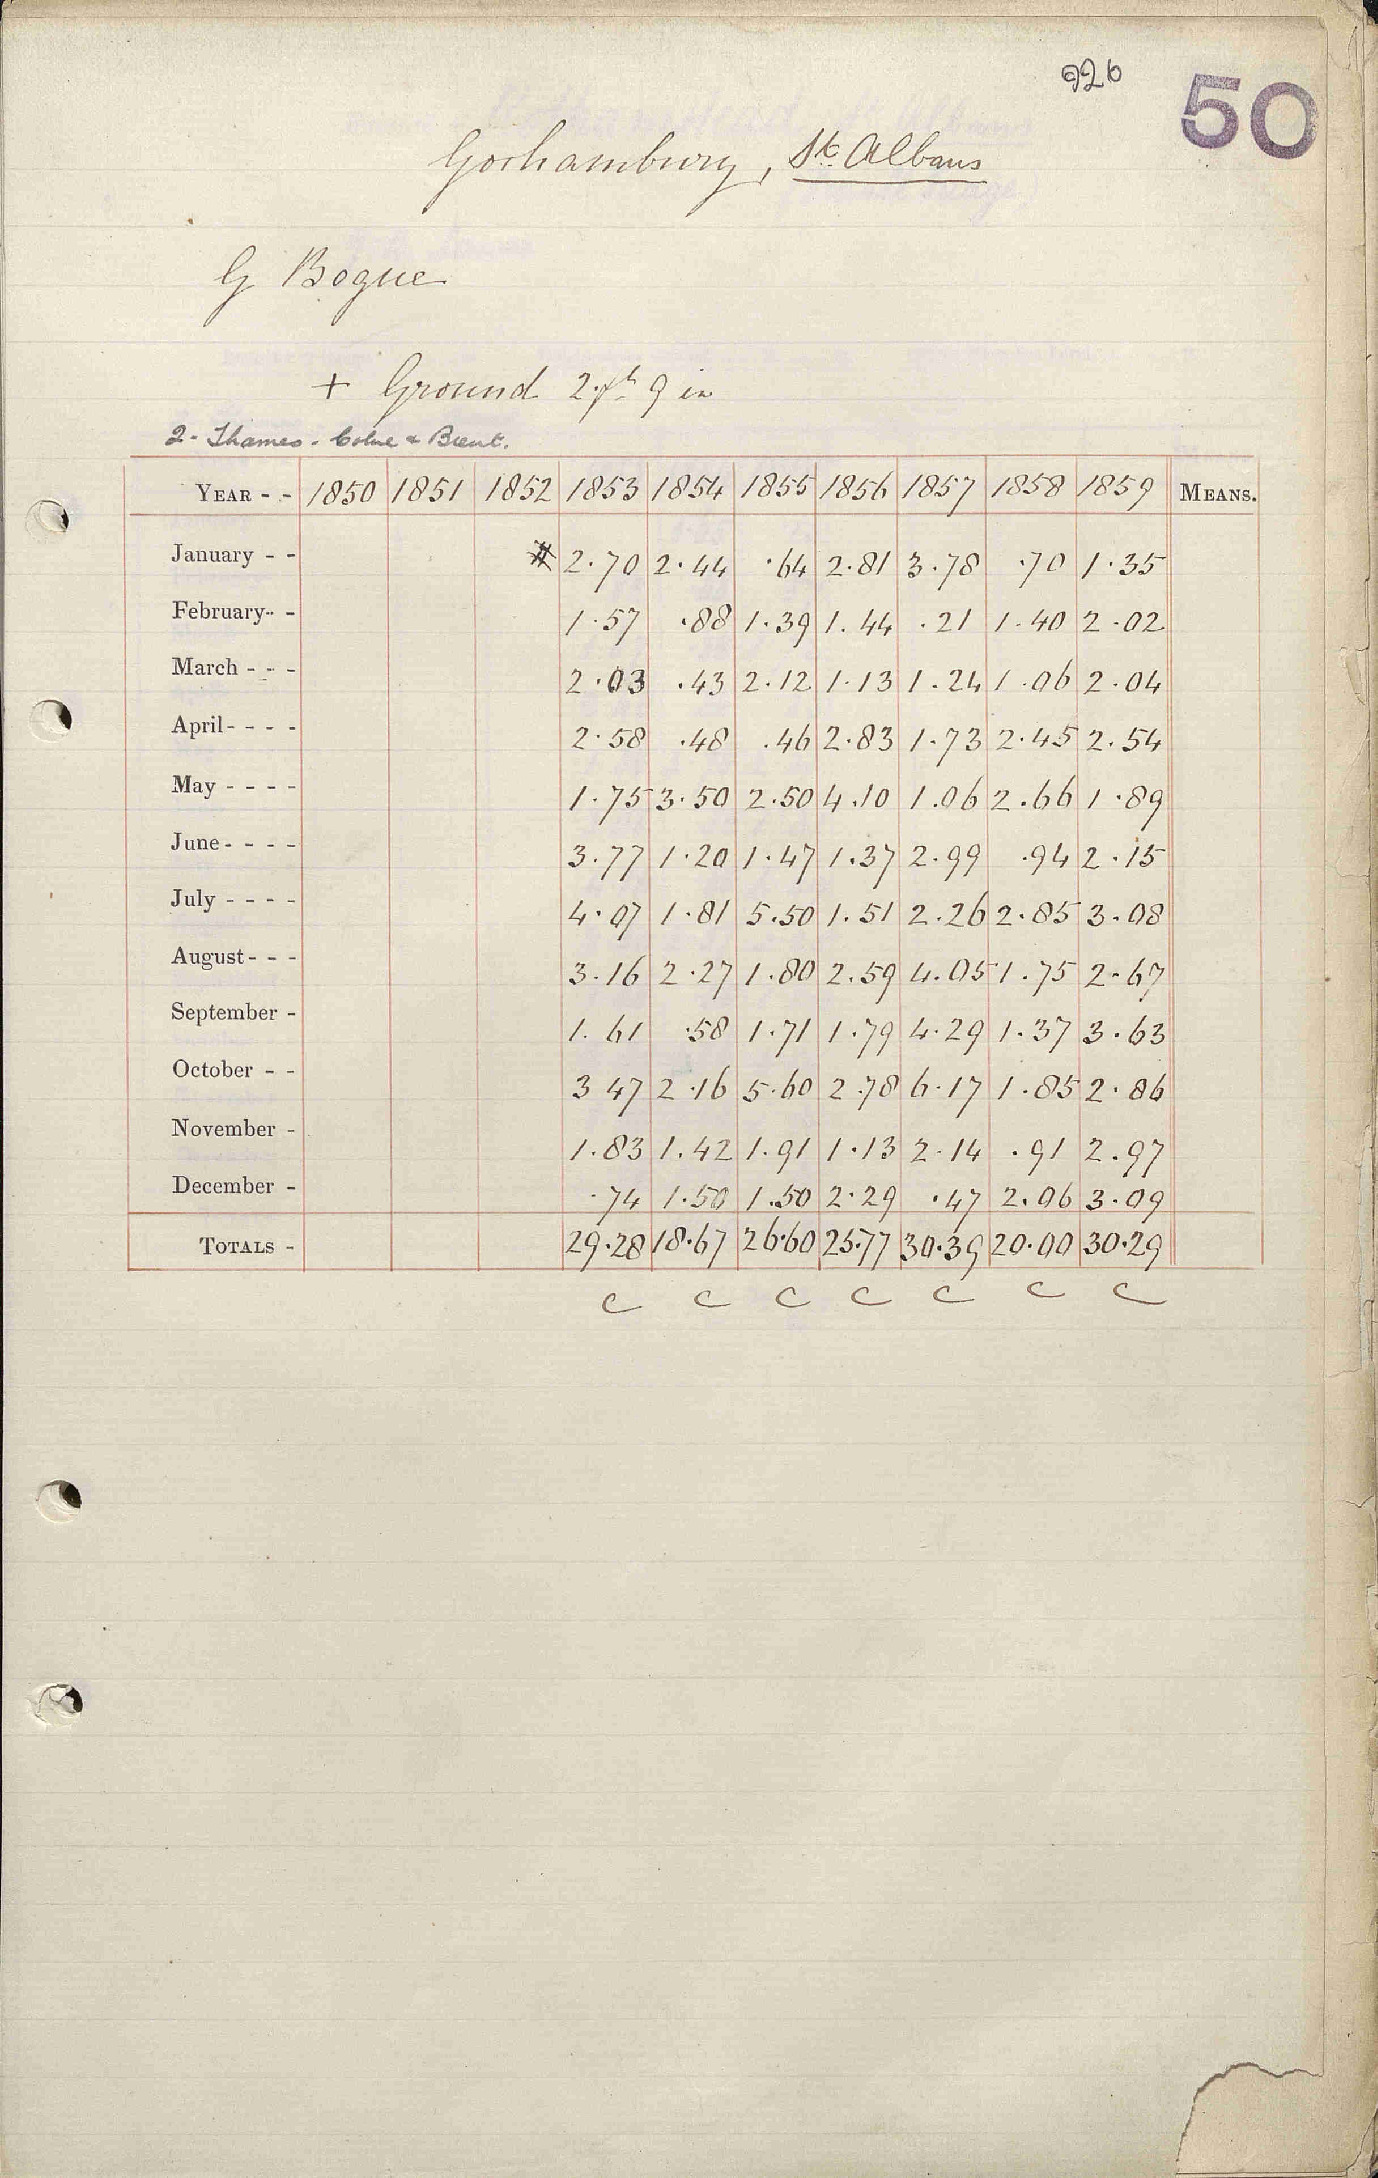 926
50
Gorhambury, St. Albans
G Bogue
+ Ground 2 ft 9 in
2 - Thames - Colne & Brent.
YEAR - - 1850 1851 1852 1853 1854 1855 1856 1857 1858 1859 MEANS.
January - - # 2.70 2.44 .64 2.81 3.78 .70 1.35
February - - 1.57 .88 1.39 1.44 .21 1.40 2.02
March - - - 2.03 .43 2.12 1.13 1.24 1.06 2.04
April - - - - 2.58 .48 .46 2.83 1.73 2.45 2.54
May - - - - 1.75 3.50 2.50 4.10 1.06 2.66 1.89
June - - - - 3.77 1.20 1.47 1.37 2.99 .94 2.15
July - - - - 4.07 1.81 5.50 1.51 2.26 2.85 3.08
August - - - 3.16 2.27 1.80 2.59 4.05 1.75 2.67
September - 1.61 .58 1.71 1.79 4.29 1.37 3.63
October - - 3 47 2.16 5.60 2.78 6.17 1.85 2.86
November - 1.83 1.42 1.91 1.13 2.14 .91 2.97
December - .74 1.50 1.50 2.29 .47 2.06 3.09
TOTALS - 29.28 18.67 26.60 25.77 30.39 20.00 30.29
C C C C C C C